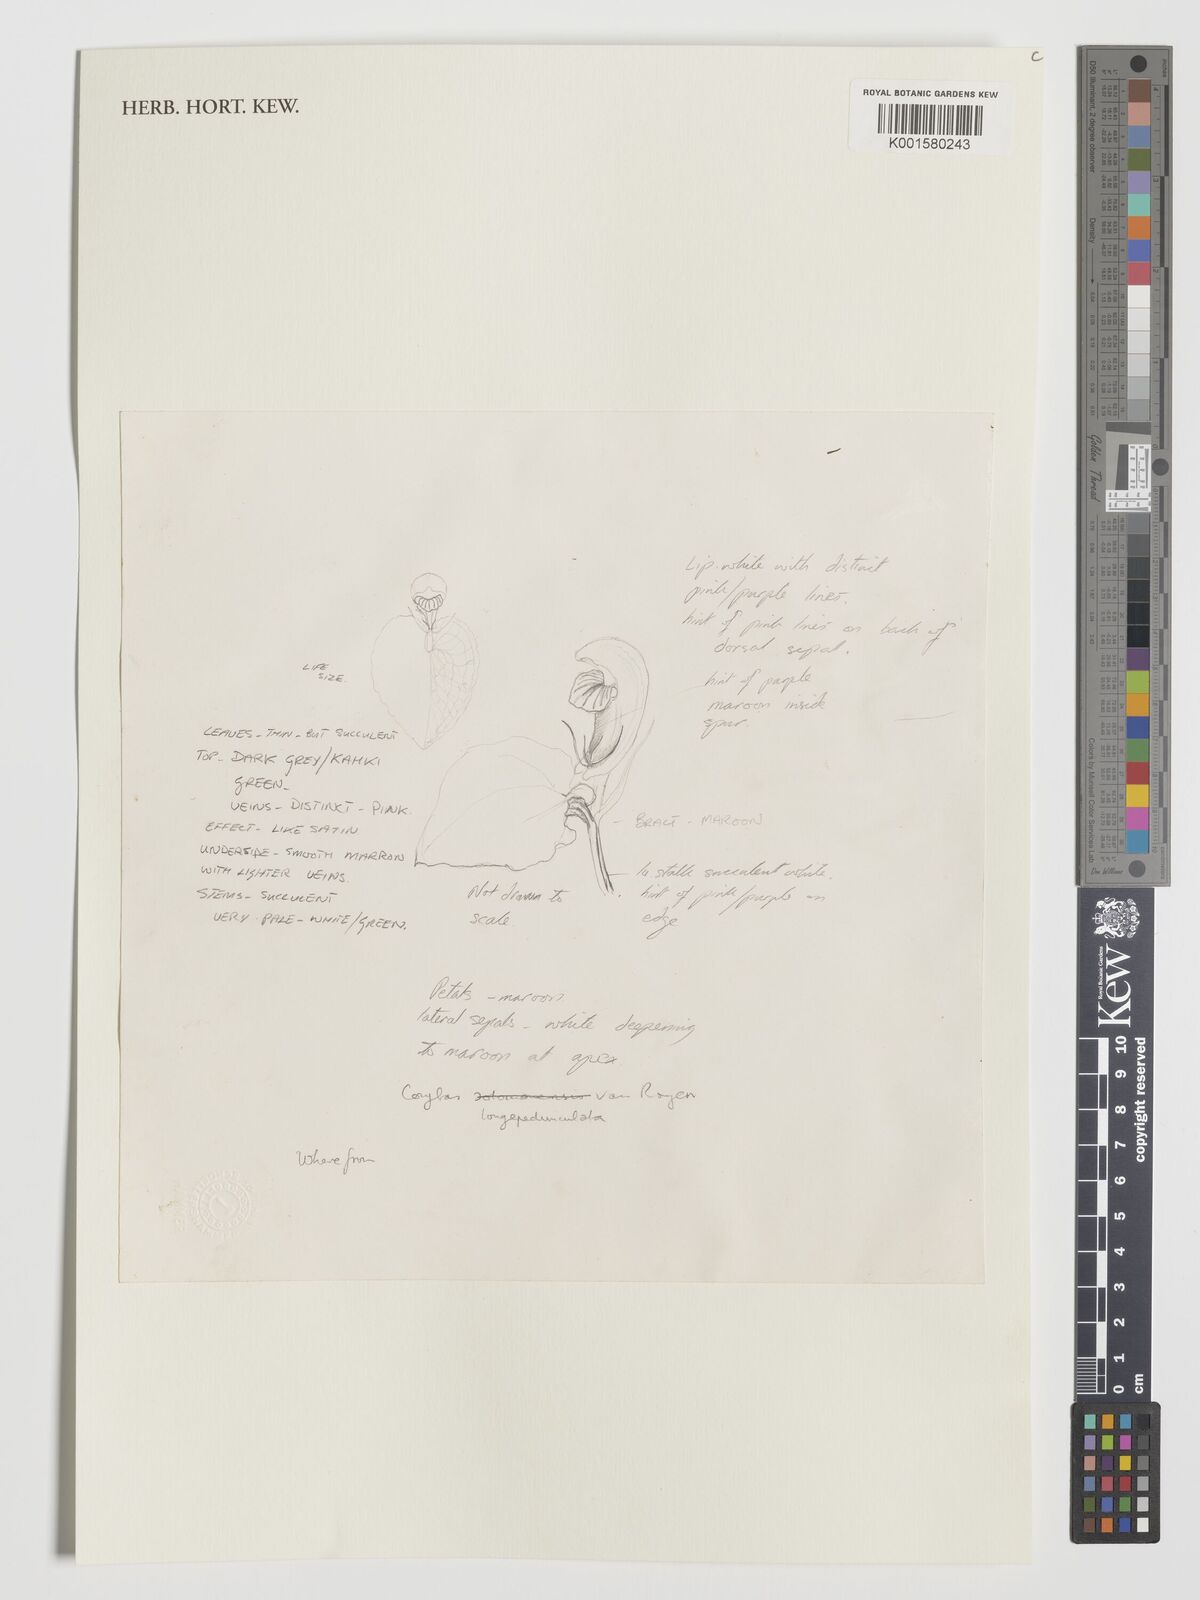 HERB. HORT. KEW.
C
ROYAL BOTANIC GARDENS KEW
K001580243
Lip-white with distinct
pink/purple lines.
hint of pink lines on back of
dorsal sepal.
hint of purple
maroon inside
spur.
LIFE
SIZE.
LEAVES - THIN - BUT SUCCULENT
TOP - DARK GREY/KAHKI
GREEN -
VEINS - DISTINCT - PINK.
EFFECT - LIKE SATIN
UNDERSIDE - SMOOTH MARRON
WITH LIGHTER VEINS.
STEMS - SUCCULENT
VERY PALE - WHITE/GREEN.
- BRACT - MAROON
stalk succulent white.
hint of pink/purple on
edge
Not drawn to
scale.
Petals - maroon
lateral sepals - white deepening
to maroon at apex.
Corybas van Royen
longepedunculata
Where from
D50 Illuminant, 2 degree observer
Density
Golden Thread
Colors by Munsell Color Services Lab
Kew
Royal Botanic Gardens
0 1 2 3 4 5 6 7 8 9 10
cm
copyright reserved